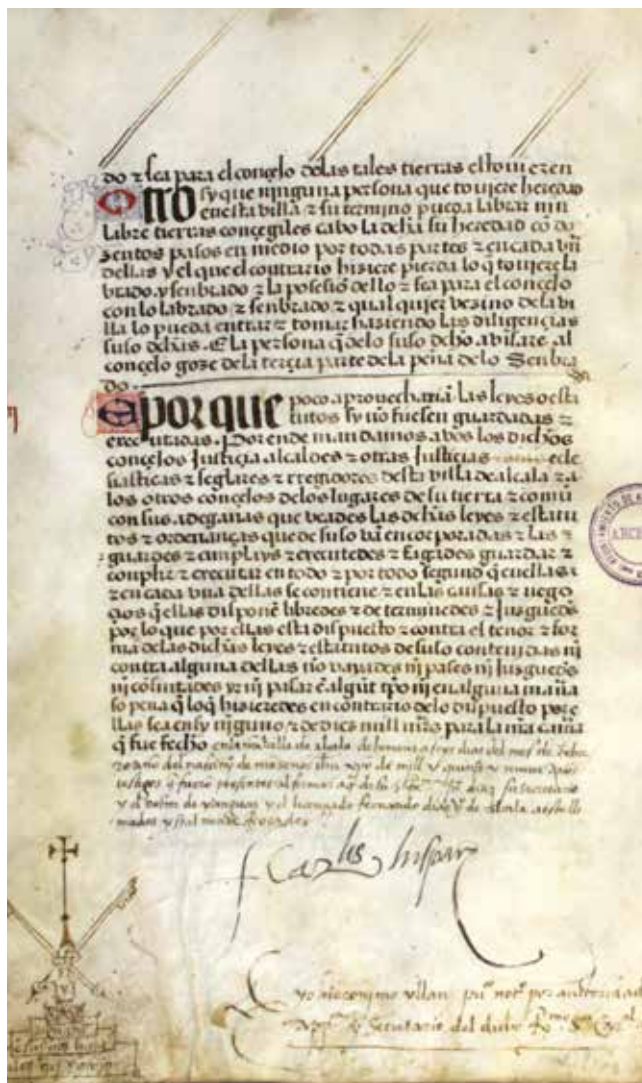 do ⁊ sea para el conçelo delas tales tierras
Otro sy que ninguna persona que touiere heredad
en esta villa ⁊ su termino pueda labrar nin
labre tierras conçegiles cabo la dcħa su heredad cõ do
zentos pasos en medio por todas partes ⁊ en cada vñ
dellas y el que el contrario hisiere pierda lo q̃ touiere la
brado. y senbrado ⁊ la posesiõ dello ⁊ sea para el conçelo
con lo labrado ⁊ senbrado ⁊ qual quier vesino dela vi
lla lo pueda entrar ⁊ tomar hasiendo las diligençias
suso dcħas. E la persona q̃ delo suso dcħo abisare al
conçelo goze dela terçia parte dela pena delo Senbra
do.
E porque poco aprouecharia las leyes o esta
tutos sy nõ fuesen guardadas ⁊
executadas. Por ende mandamos a vos los dichos
conçelos Justiçia alcaldes ⁊ otras Justiçias ecle
siasticas ⁊ seglares ⁊ rregidores desta villa de alcala ⁊ a
los otros conçelos delos lugares de su tierra ⁊ comũ
con sus adeganas que veades las dcħas leyes ⁊ estatu
tos ⁊ ordenanças que de suso vã encorporadas ⁊ las
guardes ⁊ cunplays ⁊ executedes ⁊ fagades guardar ⁊
conplir ⁊ executar en todo ⁊ por todo segund q̃ en ellas
⁊ en cada vna dellas se contiene ⁊ en las causas ⁊ nego
çios q̃ ellas disponẽ libredes ⁊ determinedes ⁊ Jusguedes
por lo que por ellas esta dispuesto ⁊ contra el tenor ⁊ for
ma delas dichas leyes ⁊ estatutos de suso contenidas nj
contra alguna dellas nõ vayades nj pases nj Jusguedes
nj cõsintades yr nj pasar ẽ algũt tpõ nj en alguna mañа
so pena q̃ lo q̃ hisieredes en contrario delo dispuesto por e
llas sea en sy njnguno ⁊ de dies mill mr̃s para la nr̃a camã
q̃ fue fecho en la nr̃a villa de alcala de henares a tres dias del mes de
año del nasçimjº de nr̃o señor de mill ⁊ quinºs ⁊ nueue
testigos q̃ fuerõ presentes
y el y el liçençiado fernando de alcala
Carlis hispan
yo hieronimo yllan notº por auctoridad
appca secretario del dicho Rmo S Caral